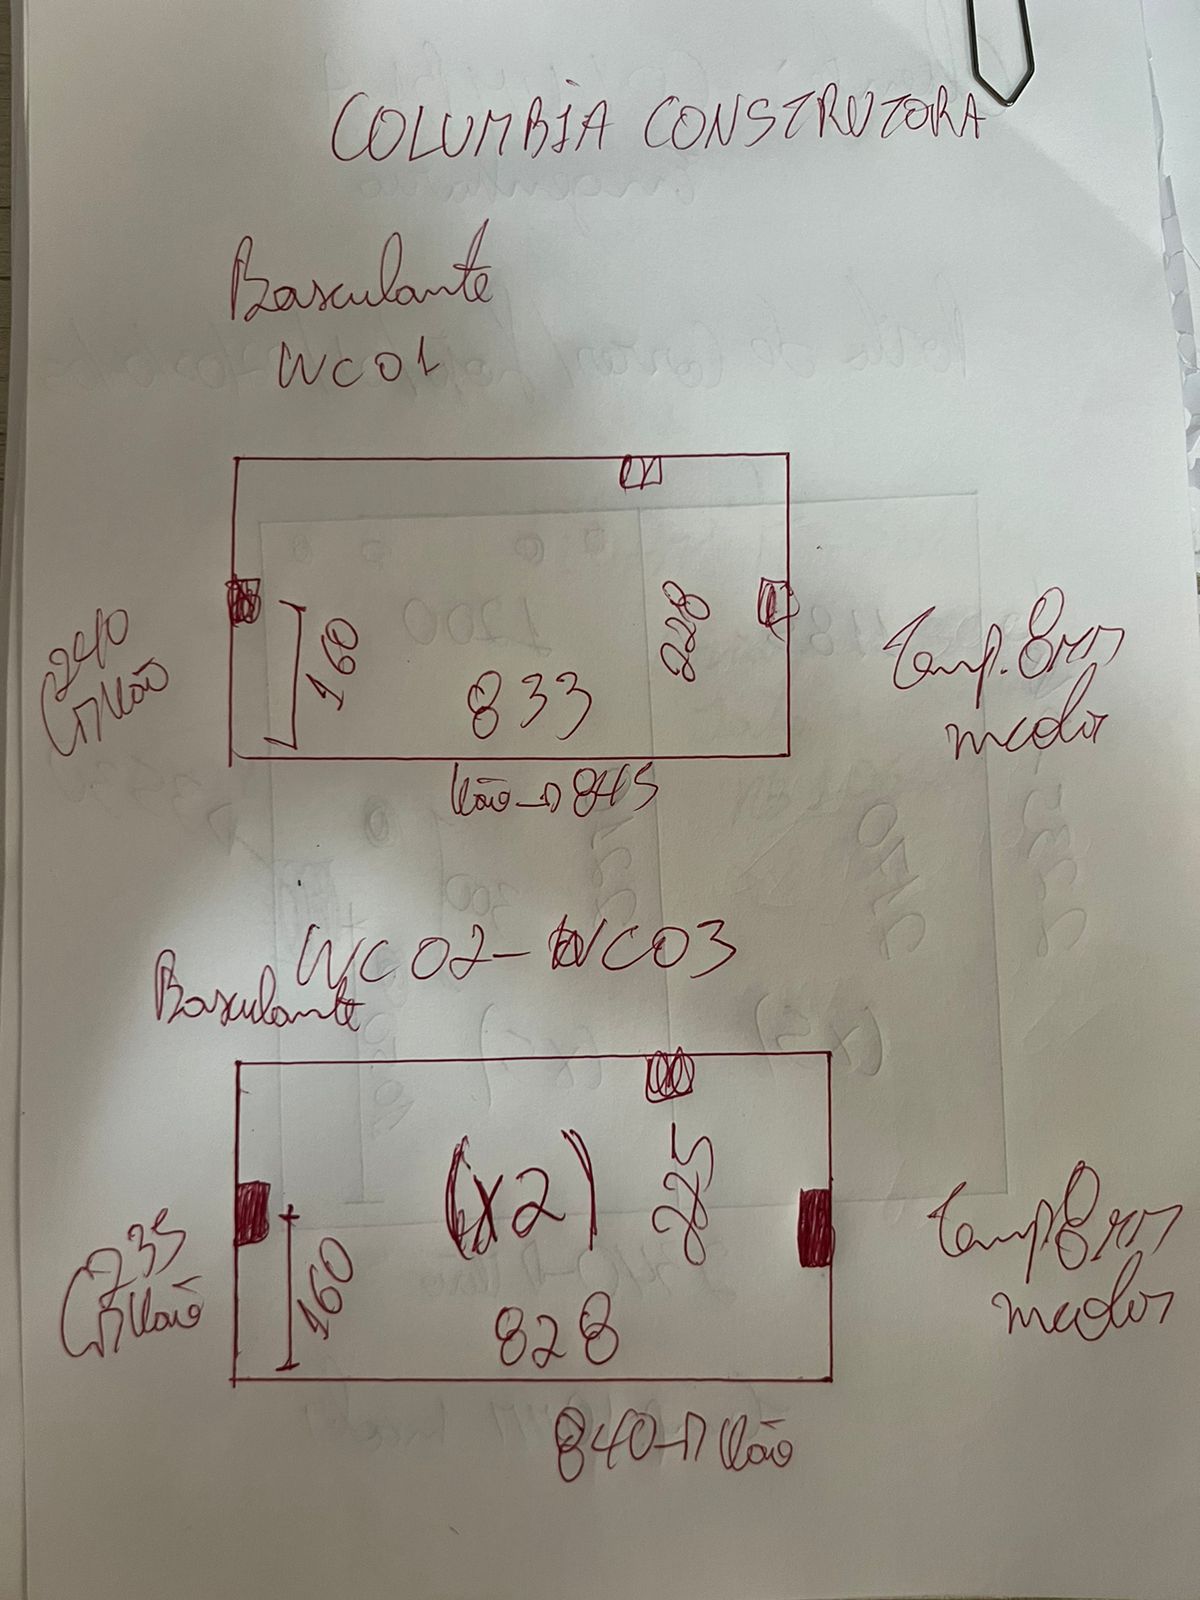 COLUMBIA CONSTRUTORA
Basculante
WC01
240
Vão
160
833
228
Vão 845
Temp. 8mm
incolor
WC02-WC03
Basculante
235
Vão
160
(x2)
225
828
840 Vão
Temp 8mm
incolor